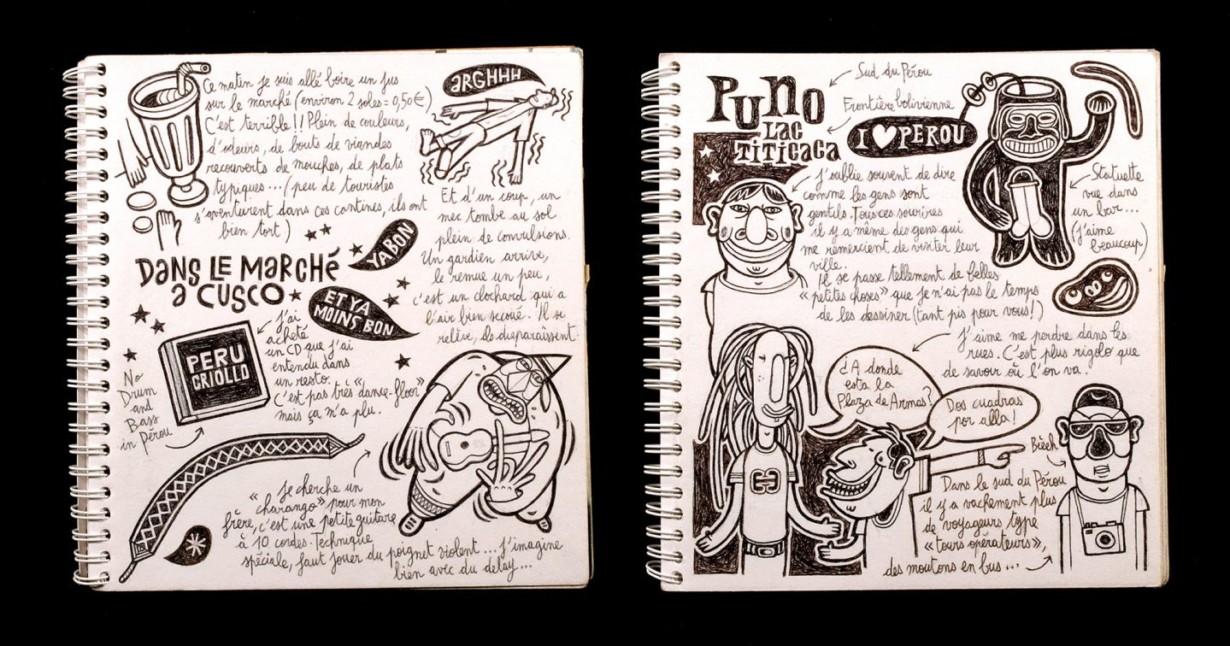 Ce matin je suis allé boire un jus
sur le marché (environ 2 soles = 0,50€)
C'est terrible!! Plein de couleurs,
d'odeurs, de bouts de viandes
recouverts de mouches, de plats
typiques... (peu de touristes
s'aventurent dans ces cantines, ils ont
bien tort)
ARGHHH
Et d'un coup, un
mec tombe au sol
plein de convulsions.
Un gardien arrive,
le remue un peu,
c'est un clochard qui a
l'air bien secoué. Il se
relève, ils disparaissent.
DANS LE MARCHÉ
A CUSCO
YA BON
ET YA
MOINS BON
PERU
CRIOLLO
J'ai
acheté
un CD que j'ai
entendu dans
un resto.
C'est pas très «dance-floor»
mais ça m'a plu.
No
Drum
and
Bass
in Pérou
Je cherche un
«charango» pour mon
frère, c'est une petite guitare
à 10 cordes. Technique
spéciale, faut jouer du poignet violent... J'imagine
bien avec du delay...
PUNO
LAC
TITICACA
Sud du Pérou
Frontière bolivienne
I ♥ PEROU
J'oublie souvent de dire
comme les gens sont
gentils. Tous ces sourires
il y a même des gens qui
me remercient de visiter leur
ville.
Il se passe tellement de belles
«petites choses» que je n'ai pas le temps
de les dessiner (tant pis pour vous!)
Statuette
vue dans
un bar...
(J'aime
beaucoup)
J'aime me perdre dans les
rues. C'est plus rigolo que
de savoir où l'on va.
¿A donde
esta la
Plaza de Armas?
Dos cuadras
por alla!
Bèèh
Dans le sud du Pérou
il y a vachement plus
de voyageurs type
«tours opérateurs»,
des moutons en bus...